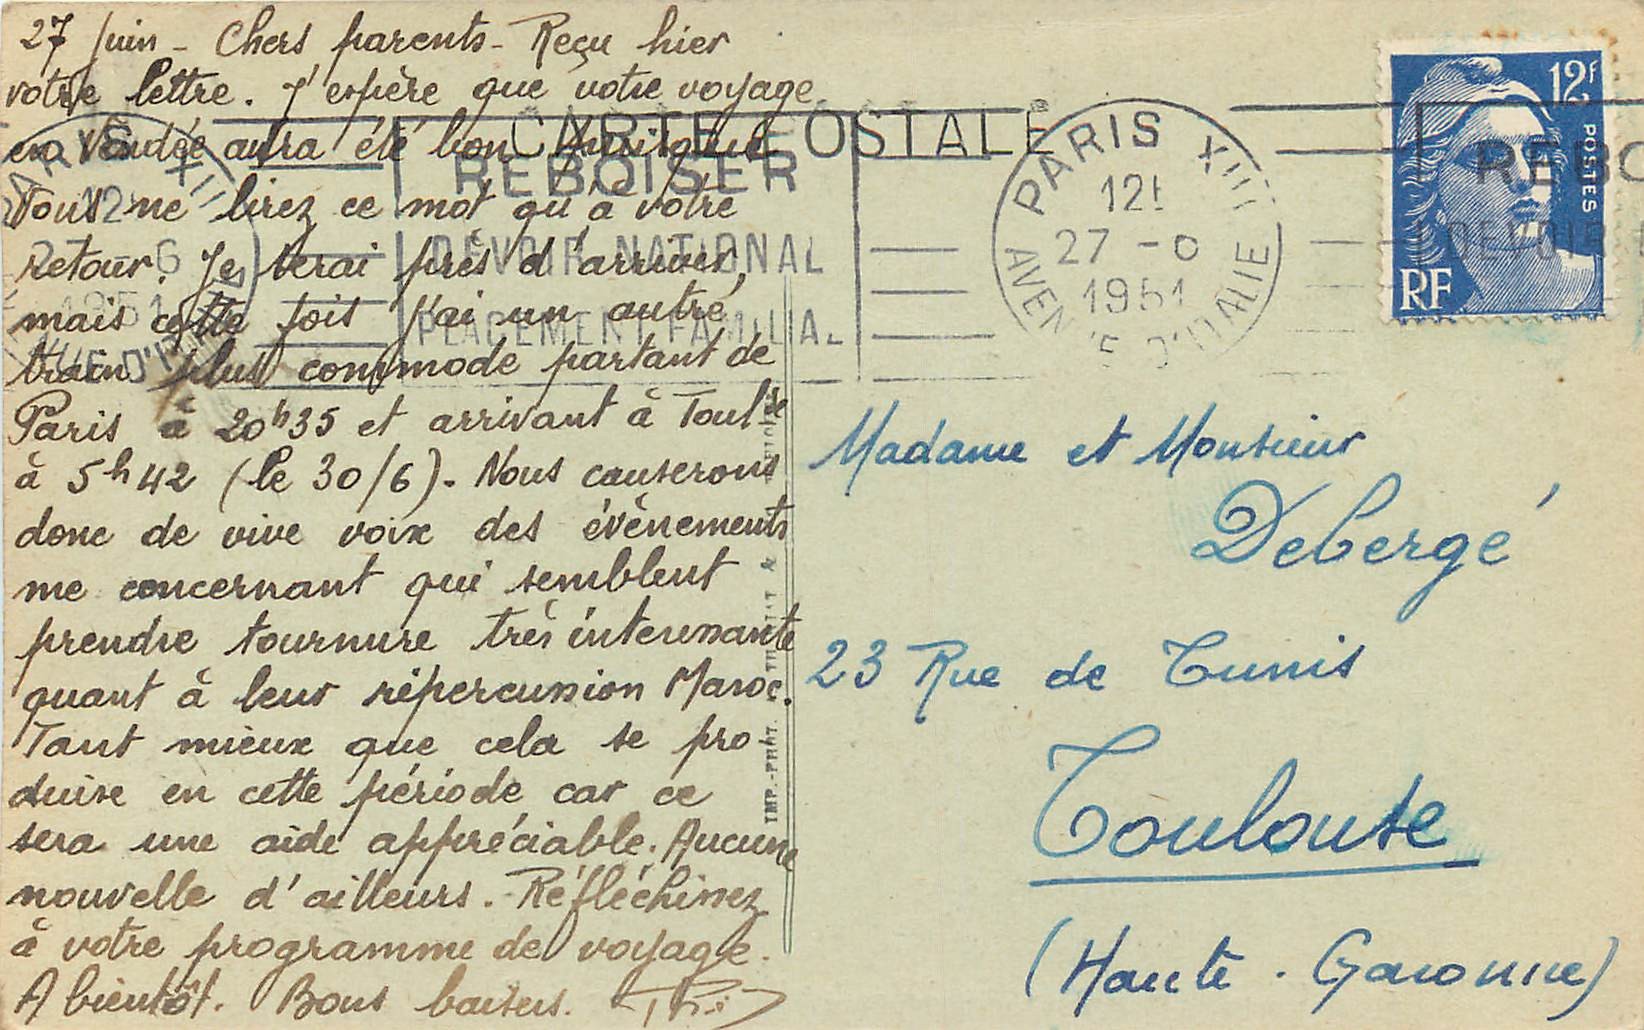 27 Juin - Chers parents - Reçu hier
votre lettre. J'espère que votre voyage
en Vendée aura été bon. Puisque
Vous ne lirez ce mot qu'à votre
retour. Je serai près d'arriver,
mais cette fois j'ai un autre
train plus commode partant de
Paris à 20h35 et arrivant à Toulse
à 5h42 (le 30/6). Nous causerons
donc de vive voix des évènements
me concernant qui semblent
prendre tournure très intéressante
quant à leur répercussion Maroc.
Tant mieux que cela se pro-
duise en cette période car ce
sera une aide appréciable. Aucune
nouvelle d'ailleurs. - Réfléchissez
à votre programme de voyage.
A bientôt. Bons baisers.
CARTE POSTALE
REBOISER
DEVOIR NATIONAL
PLACEMENT FAMILIAL
PARIS XIII
12
27 - 6
1951
AVENUE D'ITALIE
12f
POSTES
RF
REBO
DEVOIR
Madame et Monsieur
Debergé
23 Rue de Tunis
Toulouse
(Haute-Garonne)